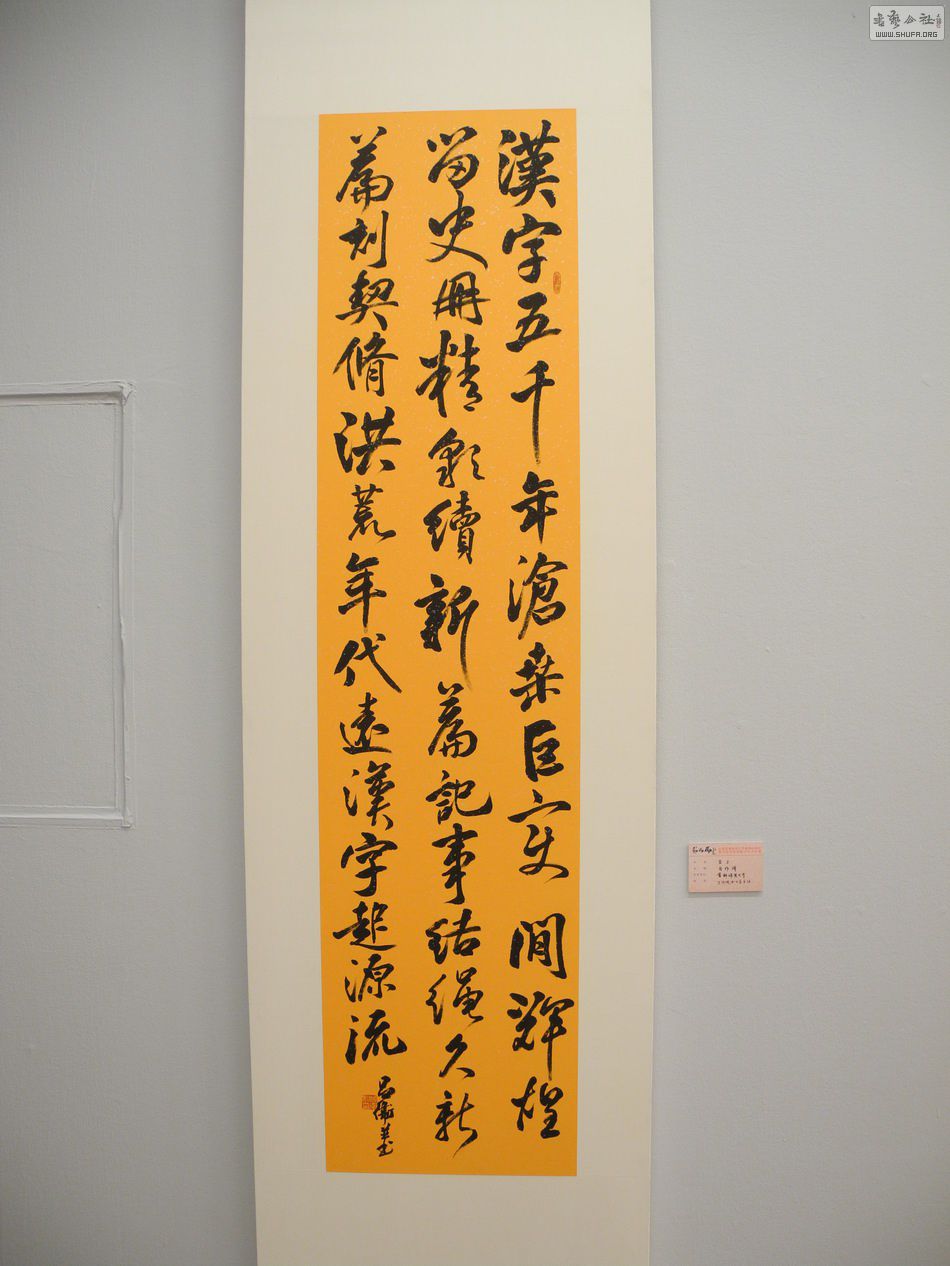 漢字五千年滄桑巨变間輝煌
留史冊精彩續新篇記事結繩久新
篇刻契脩洪荒年代遠漢字起源流
WWW.SHUFA.ORG